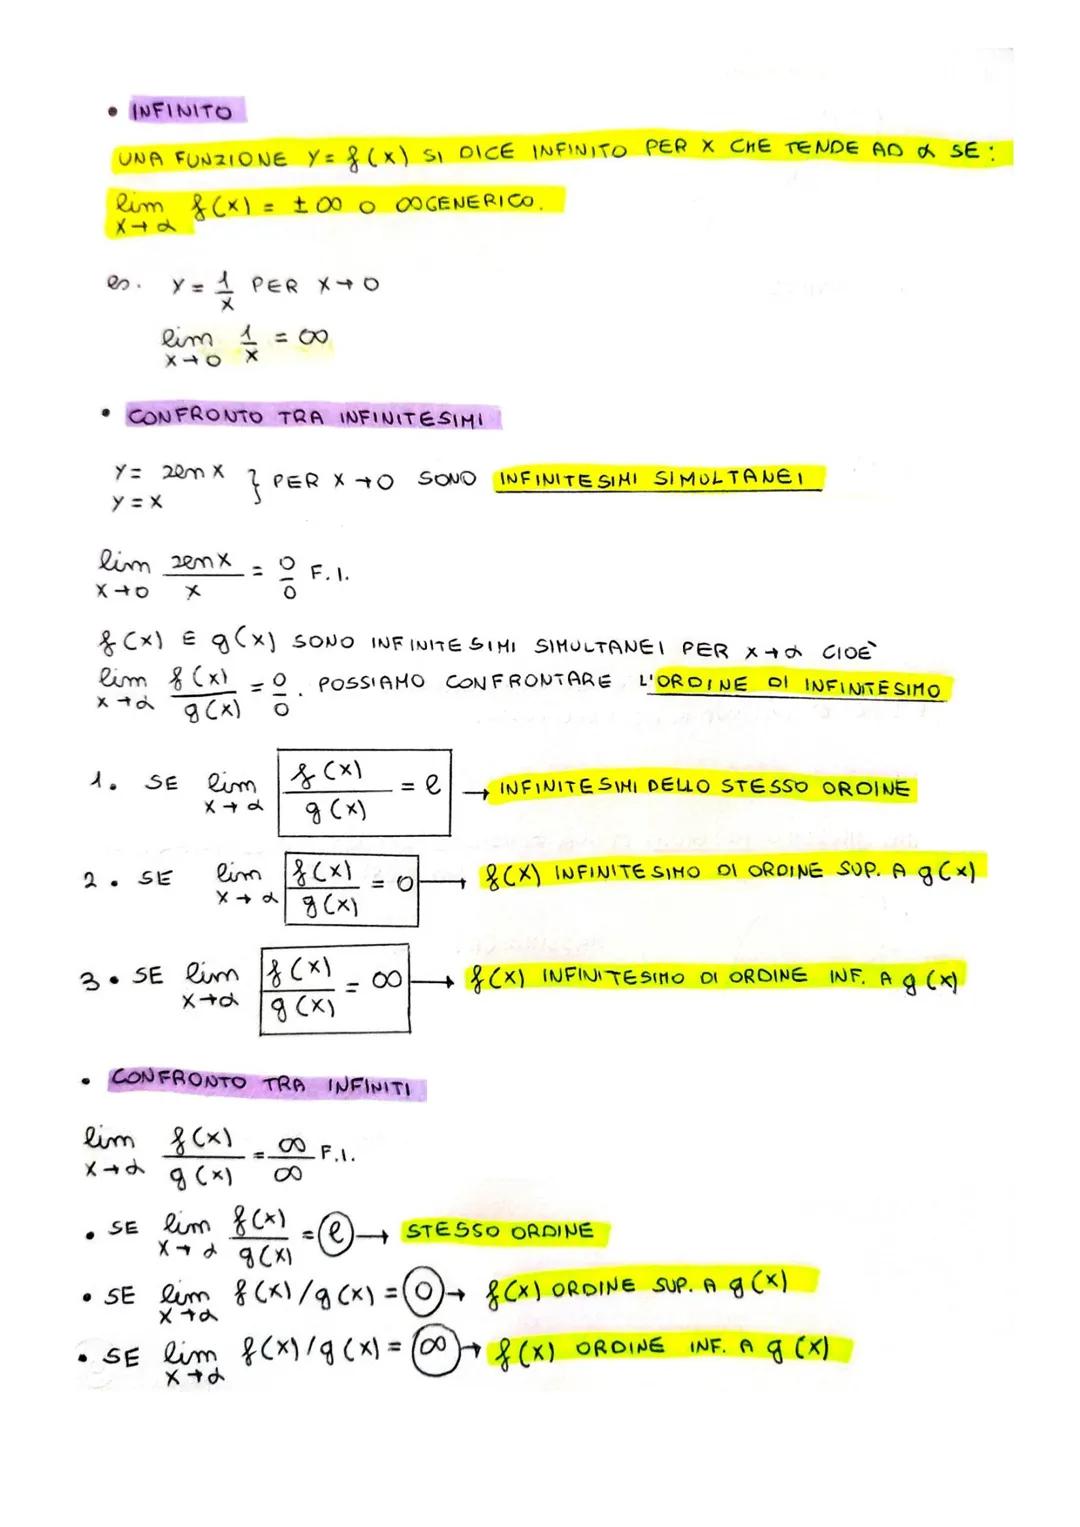 • INFINITO
UNA FUNZIONE Y = f(x) SI DICE INFINITO PER X CHE TENDE AD α SE:
lim f(x) = ±∞ O ∞ GENERICO.
x→α
es. y = 1/x PER X→0
lim 1/x = ∞
x→0
• CONFRONTO TRA INFINITESIMI
y = sen x } PER X→0 SONO INFINITESIMI SIMULTANEI
y = x
lim sen x / x = 0/0 F.I.
x→0
f(x) E g(x) SONO INFINITESIMI SIMULTANEI PER x→α CIOÈ
lim f(x)/g(x) = 0/0. POSSIAMO CONFRONTARE L'ORDINE DI INFINITESIMO
x→α
1. SE lim f(x)/g(x) = l → INFINITESIMI DELLO STESSO ORDINE
x→α
2. SE lim f(x)/g(x) = 0 → f(x) INFINITESIMO DI ORDINE SUP. A g(x)
x→α
3. SE lim f(x)/g(x) = ∞ → f(x) INFINITESIMO DI ORDINE INF. A g(x)
x→α
• CONFRONTO TRA INFINITI
lim f(x)/g(x) = ∞/∞ F.I.
x→α
• SE lim f(x)/g(x) = l → STESSO ORDINE
x→α
• SE lim f(x)/g(x) = 0 → f(x) ORDINE SUP. A g(x)
x→α
• SE lim f(x)/g(x) = ∞ → f(x) ORDINE INF. A g(x)
x→α